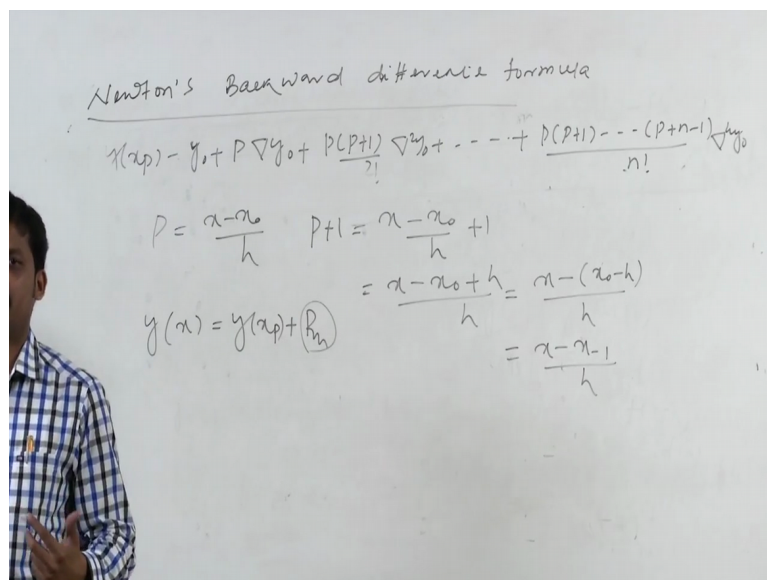 Newton's Backward difference formula
y(xp) = y₀ + P∇y₀ + P(P+1)/2! ∇²y₀ + - - - - + P(P+1) - - - (P+n-1)/n! ∇ⁿy₀
P = x-x₀/h P+1 = x-x₀/h +1
= x-x₀+h/h = x-(x₀-h)/h
y(x) = y(xp) + Rn
= x-x₋₁/h